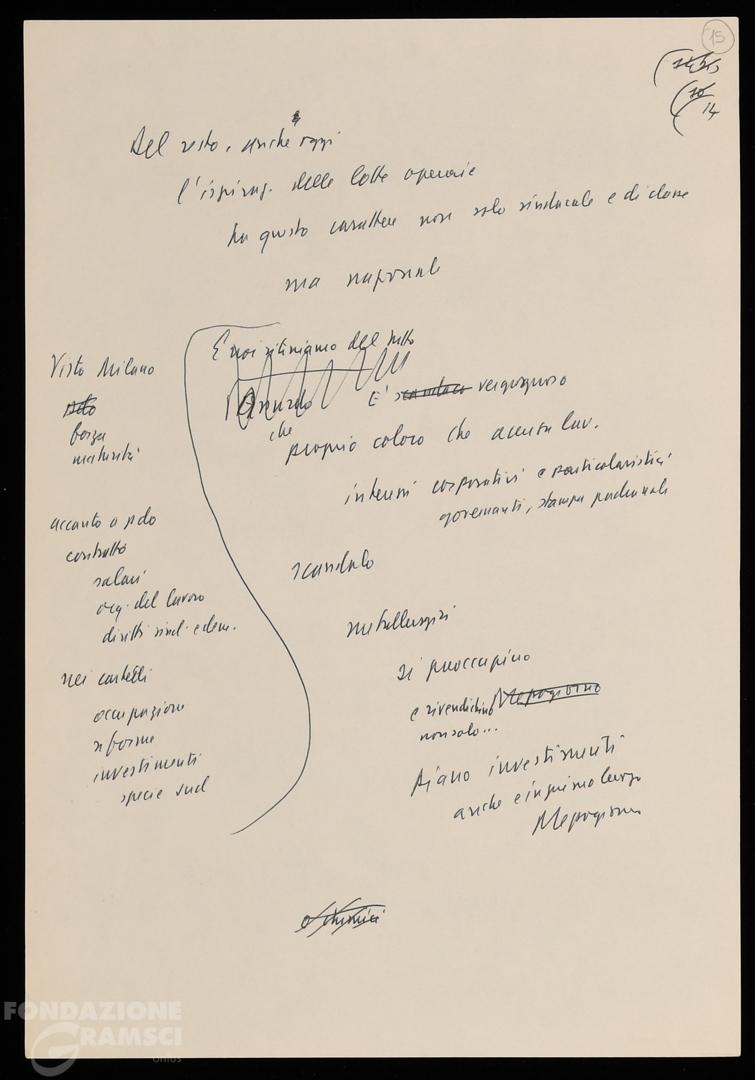 15
14
Del resto, anche oggi
l'ispiraz. delle lotte operaie
ha questo carattere non solo sindacale e di classe
ma nazionale
Visto Milano
solo
forza
maturità
accanto a solo
contratto
salari
org. del lavoro
diritti sind. e dem.
nei cartelli
occupazione
riforme
investimenti
specie sud
E noi riteniamo del tutto
assurdo È scandaloso vergognoso
che
proprio coloro che accusa lav.
interessi corporativi e particolaristici
governanti, stampa padronale
scandalo
metallurgici
si preoccupino
e rivendichino Mezzogiorno
non solo...
siano investimenti
anche e in primo luogo
Mezzogiorno
o chimici
FONDAZIONE
GRAMSCI
onlus